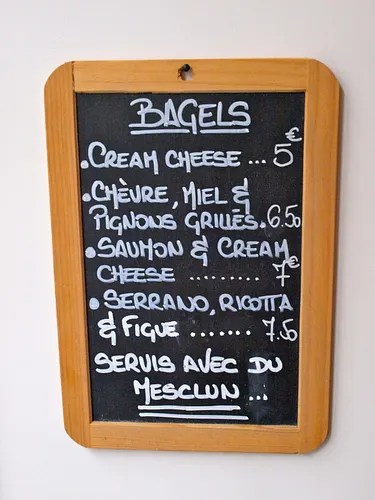 BAGELS
• CREAM CHEESE ... 5€
• CHÈVRE, MIEL &
PIGNONS GRILLÉS. 6.50
• SAUMON & CREAM
CHEESE ......... 7€
• SERRANO, RICOTTA
& FIGUE ....... 7.50
SERVIS AVEC DU
MESCLUN ...